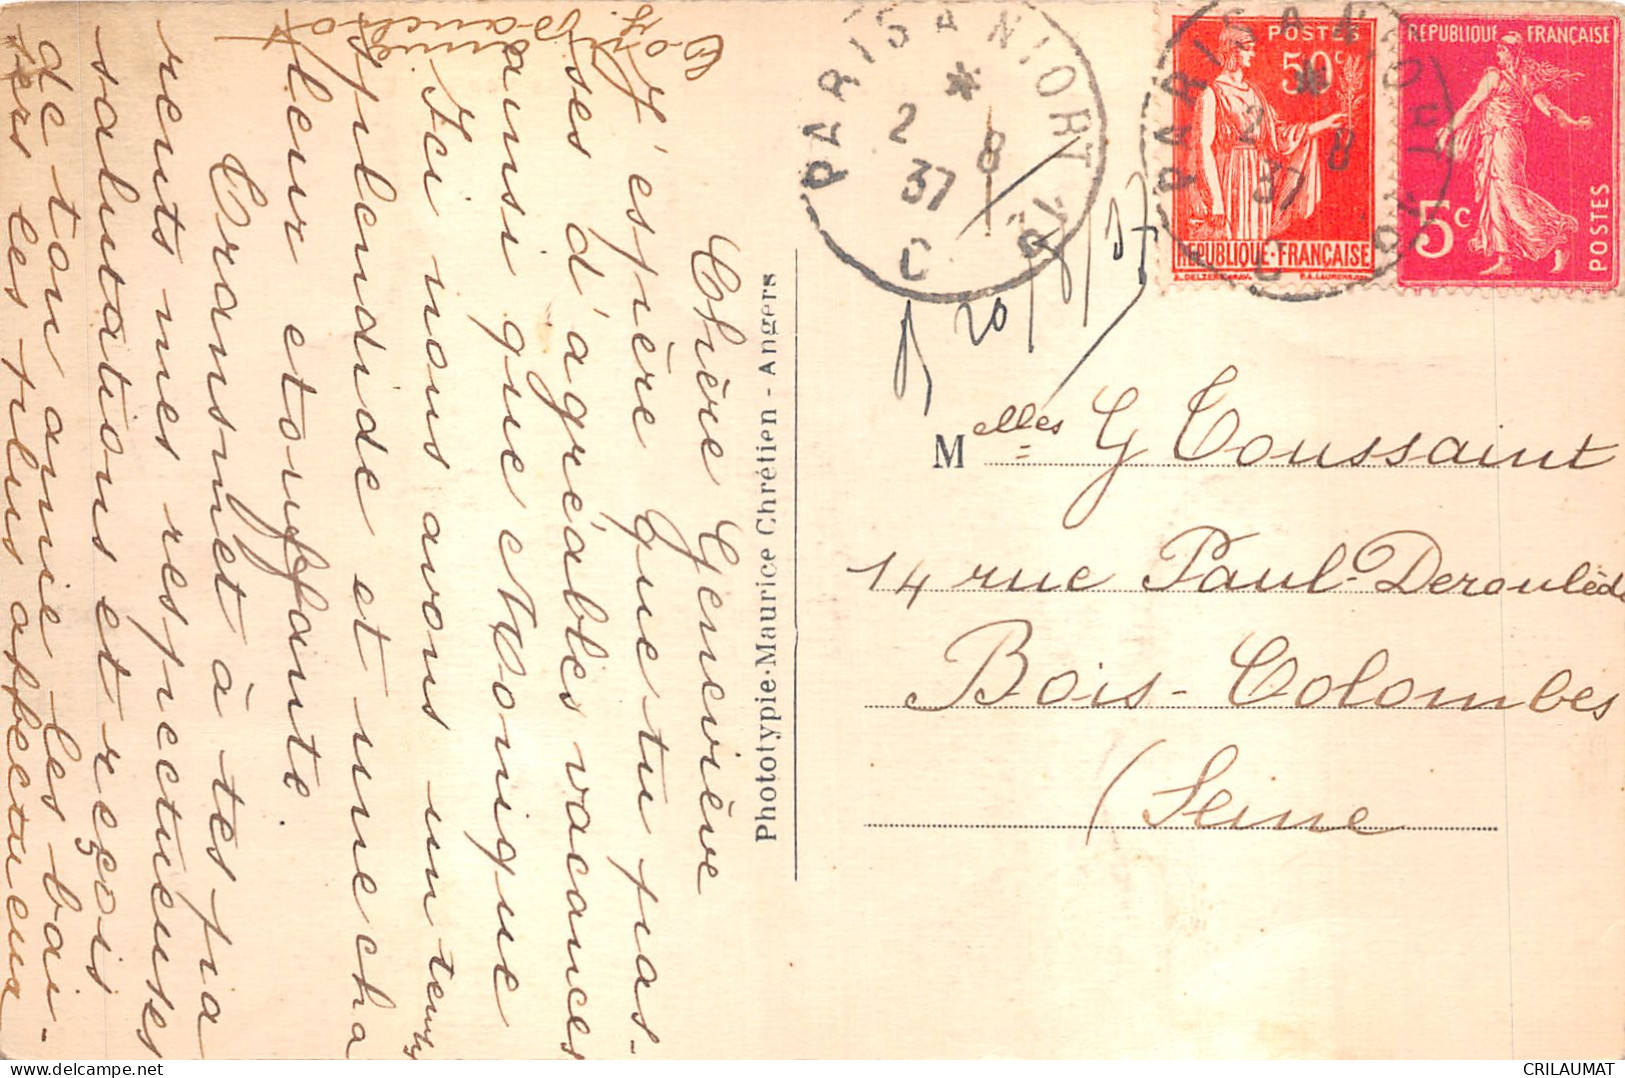 Chère Geneviève
J'espère que tu pas-
ses d'agréables vacances
ainsi que Monique
Ici nous avons un temps
splendide et une cha
leur etouffante.
Transmet à tes pa
rents mes respectueuses
salutations et reçois
de ton amie les bai-
sers les plus affectueux
Phototypie-Maurice Chrétien - Angers
PARIS A NIORT
2 8
37
C
PARIS A NIORT
2 8
37
C
POSTES
50c
REPUBLIQUE·FRANÇAISE
REPUBLIQUE FRANÇAISE
5c
POSTES
Melles G Toussaint
14 rue Paul-Deroulède
Bois-Colombes
(Seine
CRILAUMAT